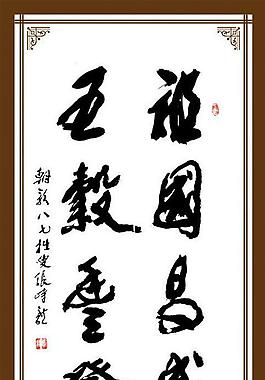 祖國昌盛
五穀豐登
朝彩八七拙叟張守龍